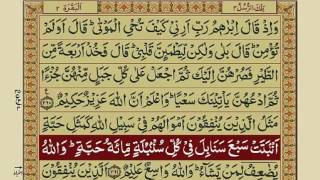 البقرة ٢
تلك الرسل ٣
وَاِذْ قَالَ اِبْرٰهٖمُ رَبِّ اَرِنِیْ كَیْفَ تُحْیِ الْمَوْتٰیؕ قَالَ اَوَلَمْ
تُؤْمِنْؕ قَالَ بَلٰی وَلٰكِنْ لِّیَطْمَىِٕنَّ قَلْبِیْؕ قَالَ فَخُذْ اَرْبَعَةً مِّنَ
الطَّیْرِ فَصُرْهُنَّ اِلَیْكَ ثُمَّ اجْعَلْ عَلٰی كُلِّ جَبَلٍ مِّنْهُنَّ جُزْءًا
ثُمَّ ادْعُهُنَّ یَاْتِیْنَكَ سَعْیًاؕ وَاعْلَمْ اَنَّ اللّٰهَ عَزِیْزٌ حَكِیْمٌ ﴿۲۶۰﴾
مَثَلُ الَّذِیْنَ یُنْفِقُوْنَ اَمْوَالَهُمْ فِیْ سَبِیْلِ اللّٰهِ كَمَثَلِ حَبَّةٍ
اَنْۢبَتَتْ سَبْعَ سَنَابِلَ فِیْ كُلِّ سُنْۢبُلَةٍ مِّائَةُ حَبَّةٍؕ وَاللّٰهُ
یُضٰعِفُ لِمَنْ یَّشَآءُؕ وَاللّٰهُ وَاسِعٌ عَلِیْمٌ ﴿۲۶۱﴾ اَلَّذِیْنَ یُنْفِقُوْنَ